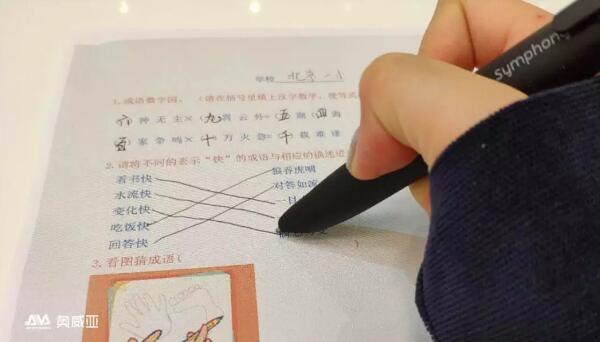 学校 北京一小
1. 成语数字园。(请在括号里填上汉字数字,使等式
(六)神无主×(九)霄云外=五湖四海
(百)家争鸣×十万火急=千载难逢
2. 请将不同的表示“快”的成语与相应的描述连
看书快 狼吞虎咽
水流快 对答如流
变化快 一日
吃饭快
回答快
3. 看图猜成语(
symphon
奥威亚